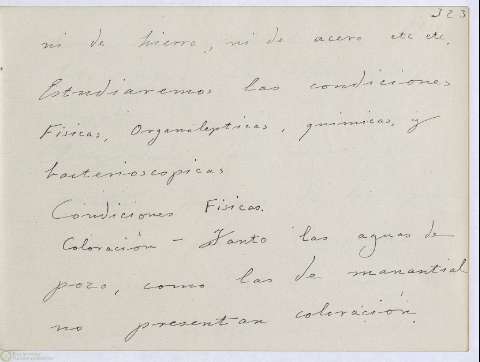 323
ni de hierro, ni de acero etc etc.
Estudiaremos las condiciones
Fisicas, Organolepticas, quimicas, y
bacterioscopicas
Condiciones Fisicas.
Coloración - Tanto las aguas de
pozo, como las de manantial
no presentan coloración.